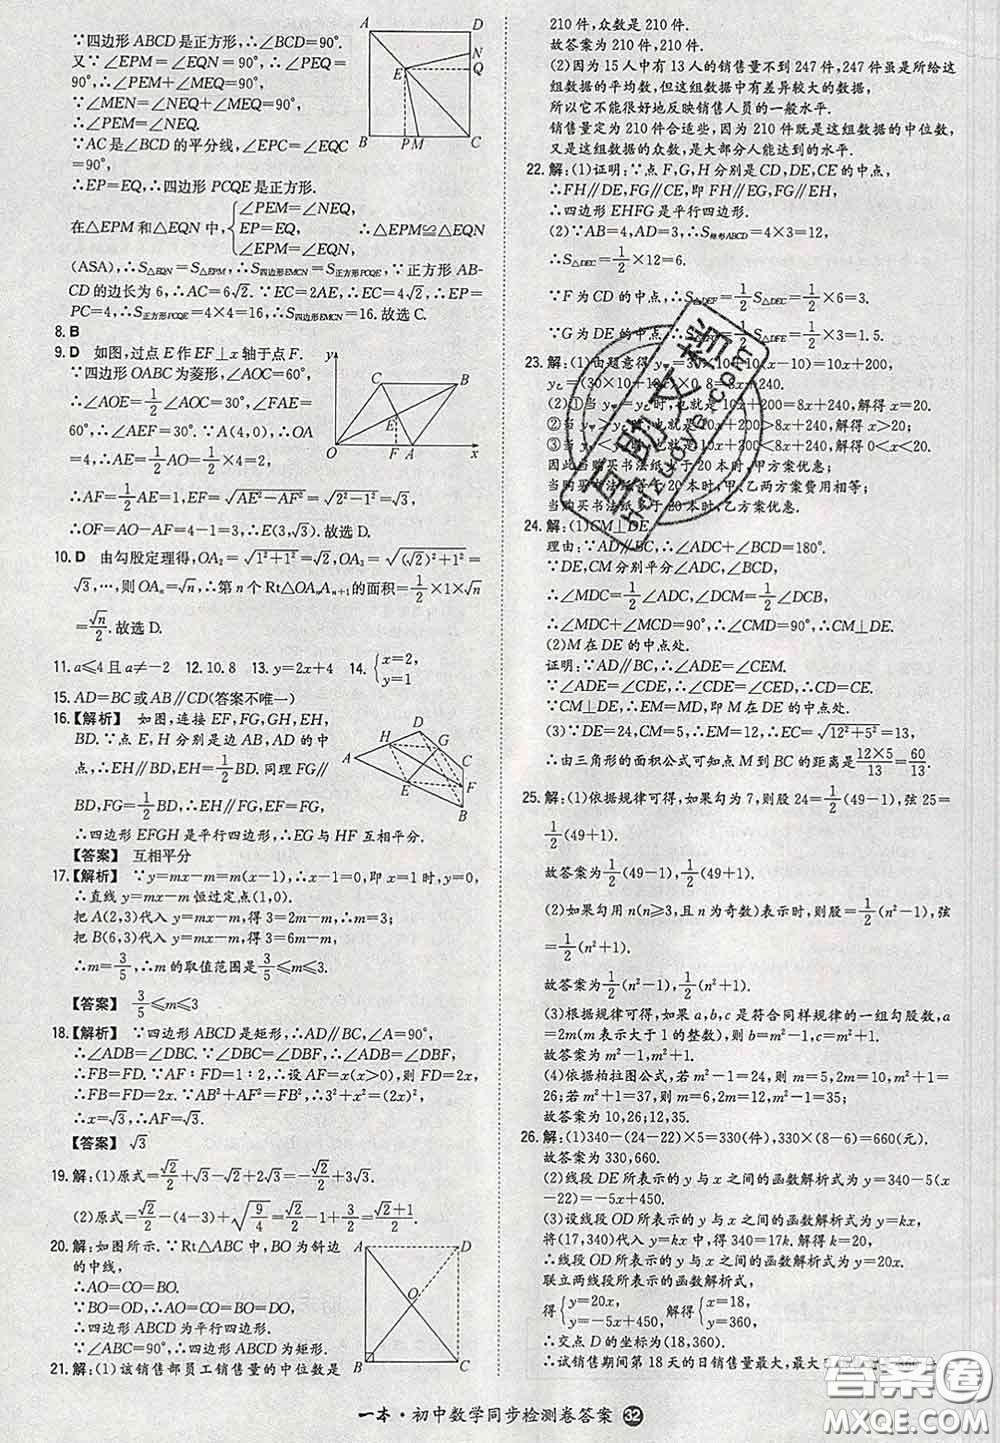 ∵四边形 ABCD 是正方形,∴∠BCD=90°.
又∵∠EPM=∠EQN=90°,∴∠PEQ=
90°,∴∠PEM+∠MEQ=90°.
∵∠MEN=∠NEQ+∠MEQ=90°,
∴∠PEM=∠NEQ.
∵AC是∠BCD的平分线,∠EPC=∠EQC
=90°,
∴EP=EQ,∴四边形 PCQE 是正方形.
在△EPM 和△EQN 中,{∠PEM=∠NEQ,
EP=EQ,
∠EPM=∠EQN,
∴△EPM≌△EQN
(ASA),∴S△EQN=S△EPM,∴S四边形EMCN=S正方形PCQE.∵正方形 AB-
CD 的边长为 6,∴AC=6√2.∵EC=2AE,∴EC=4√2,∴EP=
PC=4,∴S正方形PCQE=4×4=16,∴S四边形EMCN=16.故选 C.
8. B
9. D 如图,过点 E 作 EF⊥x 轴于点 F.
∵四边形 OABC 为菱形,∠AOC=60°,
∴∠AOE=1/2∠AOC=30°,∠FAE=
60°.∵A(4,0),∴OA
=4,∴AE=1/2AO=1/2×4=2,
∴AF=1/2AE=1,EF=√(AE²−AF²)=√(2²−1²)=√3,
∴OF=AO−AF=4−1=3,∴E(3,√3).故选 D.
10. D 由勾股定理得,OA₂=√(1²+1²)=√2,OA₃=√((√2)²+1²)=
√3,…,则 OAₙ=√n,∴第 n 个 Rt△OAₙAₙ₊₁的面积=1/2×1×√n
=√n/2.故选 D.
11. a≤4 且 a≠−2 12. 10.8 13. y=2x+4 14. {x=2,
y=1
15. AD=BC 或 AB∥CD(答案不唯一)
16.【解析】 如图,连接 EF,FG,GH,EH,
BD.∵点 E,H 分别是 AB,AD 的中
点,∴EH∥BD,EH=1/2BD.同理 FG∥
BD,FG=1/2BD,∴EH∥FG,EH=FG,
∴四边形 EFGH 是平行四边形,∴EG 与 HF 互相平分.
【答案】 互相平分
17.【解析】 ∵y=mx−m=m(x−1),∴x−1=0,即 x=1 时,y=0,
∴直线 y=mx−m 恒过定点(1,0).
把 A(2,3)代入 y=mx−m,得 3=2m−m,∴m=3;
把 B(6,3)代入 y=mx−m,得 3=6m−m,
∴m=3/5,∴m 的取值范围是3/5≤m≤3.
【答案】 3/5≤m≤3
18.【解析】 ∵四边形 ABCD 是矩形,∴AD∥BC,∠A=90°,
∴∠ADB=∠DBC.∵∠DBC=∠DBF,∴∠ADB=∠DBF,
∴FB=FD.∵AF∶FD=1∶2,∴设 AF=x(x>0),则 FD=2x,
∴FB=FD=2x.∵AB²+AF²=FB²,∴3²+x²=(2x)².∵x>0,
∴x=√3,∴AF=√3.
【答案】 √3
19. 解:(1)原式=√2/2+√3−√2+2√3=−√2/2+3√3.
(2)原式=√2/2−(4−3)+√(9/4)=√2/2−1+3/2=(√2+1)/2.
20. 解:如图所示.∵Rt△ABC 中,BO 为斜边
的中线,
∴AO=CO=BO.
∵BO=OD,∴AO=CO=BO=DO,
∴四边形 ABCD 为平行四边形.
∵∠ABC=90°,∴四边形 ABCD 为矩形.
21. 解:(1)该销售部员工销售量的中位数是
210 件,众数是 210 件.
故答案为 210 件,210 件.
(2)因为 15 人中有 13 人的销售量不到 247 件,247 件虽是所给这
组数据的平均数,但这组数据中有差异较大的数据,
所以它不能很好地反映销售人员的一般水平.
销售量定为 210 件合适些,因为 210 件既是这组数据的中位数,
又是这组数据的众数,是大部分人能达到的水平.
22. 解:(1)证明:∵点 F,G,H 分别是 CD,DE,CE 的中点,
∴FH∥DE,FG∥CE,即 FH∥EG,FG∥EH,
∴四边形 EHFG 是平行四边形.
(2)∵AB=4,AD=3,∴S矩形ABCD=4×3=12,
∴S△DEC=1/2×12=6.
∵F 为 CD 的中点,∴S△DEF=1/2S△DEC=1/2×6=3.
∵G 为 DE 的中点,∴=1/2=1/2×3=1.5.
23. 解:(1)由题意得 y甲=30×10+10(x−10)=10x+200,
y乙=(30×10+10x)×0.8=8x+240.
(2)①当 y甲=y乙时,也就是 10x+200=8x+240,解得 x=20.
②当 y甲>y乙时,也就是 10x+200>8x+240,解得 x>20;
③当 y甲<y乙时,也就是 10x+200<8x+240,解得 0<x<20.
因此当购买书法纸少于 20 本时,甲方案优惠;
当购买书法纸等于 20 本时,甲、乙两方案费用相等;
当购买书法纸多于 20 本时,乙方案优惠.
24. 解:(1)CM⊥DE.
理由:∵AD∥BC,∴∠ADC+∠BCD=180°.
∵DE,CM 分别平分∠ADC,∠DCB,
∴∠MDC=1/2∠ADC,∠MCD=1/2∠DCB,
∴∠MDC+∠MCD=90°,∴∠CMD=90°,∴CM⊥DE.
(2)M 在 DE 的中点处.
证明:∵AD∥BC,∴∠ADE=∠CEM.
∵∠ADE=∠CDE,∴∠CDE=∠CED,∴CD=CE.
∵CM⊥DE,∴EM=MD,即 M 在 DE 的中点处.
(3)∵DE=24,CM=5,∴EM=12,∴EC=√(12²+5²)=13,
∴由三角形的面积公式可知点 M 到 BC 的距离是(12×5)/13=60/13.
25. 解:(1)依据规律可得,如果勾为 7,则股 24=1/2(49−1),弦 25=
1/2(49+1).
故答案为1/2(49−1),1/2(49+1).
(2)如果勾用 n(n≥3,且 n 为奇数)表示时,则股=1/2(n²−1),弦
=1/2(n²+1).
故答案为1/2(n²−1),1/2(n²+1).
(3)根据规律可得,如果 a,b,c 是符合同样规律的一组勾股数,
a=2m(m 表示大于 1 的整数),则 b=m²−1,c=m²+1.
故答案为 m²−1,m²+1.
(4)依据柏拉图公式,若 m²−1=24,则 m=5,2m=10,m²+1=
26;若 m²+1=37,则 m=6,2m=12,m²−1=35.
故答案为 10,26;12,35.
26. 解:(1)340−(24−22)×5=330(件),330×(8−6)=660(元).
故答案为 330,660.
(2)线段 DE 所表示的 y 与 x 之间的函数解析式为 y=340−5(x
−22)=−5x+450.
(3)设线段 OD 所表示的 y 与 x 之间的函数解析式为 y=kx,
将(17,340)代入 y=kx 中,得 340=17k.解得 k=20,
∴线段 OD 所表示的 y 与 x 之间的函数解析式为 y=20x.
联立两线段所表示的函数解析式,
得{y=20x,
y=−5x+450,
解得{x=18,
y=360,
∴交点 D 的坐标为(18,360).
∴试销售期间第 18 天的日销售量最大,最大
A D N Q C M P B E
y C B E O F A x
D H G A C E F B
A D O B C
一本·初中数学同步检测卷答案 32
答案卷
MXQE.COM